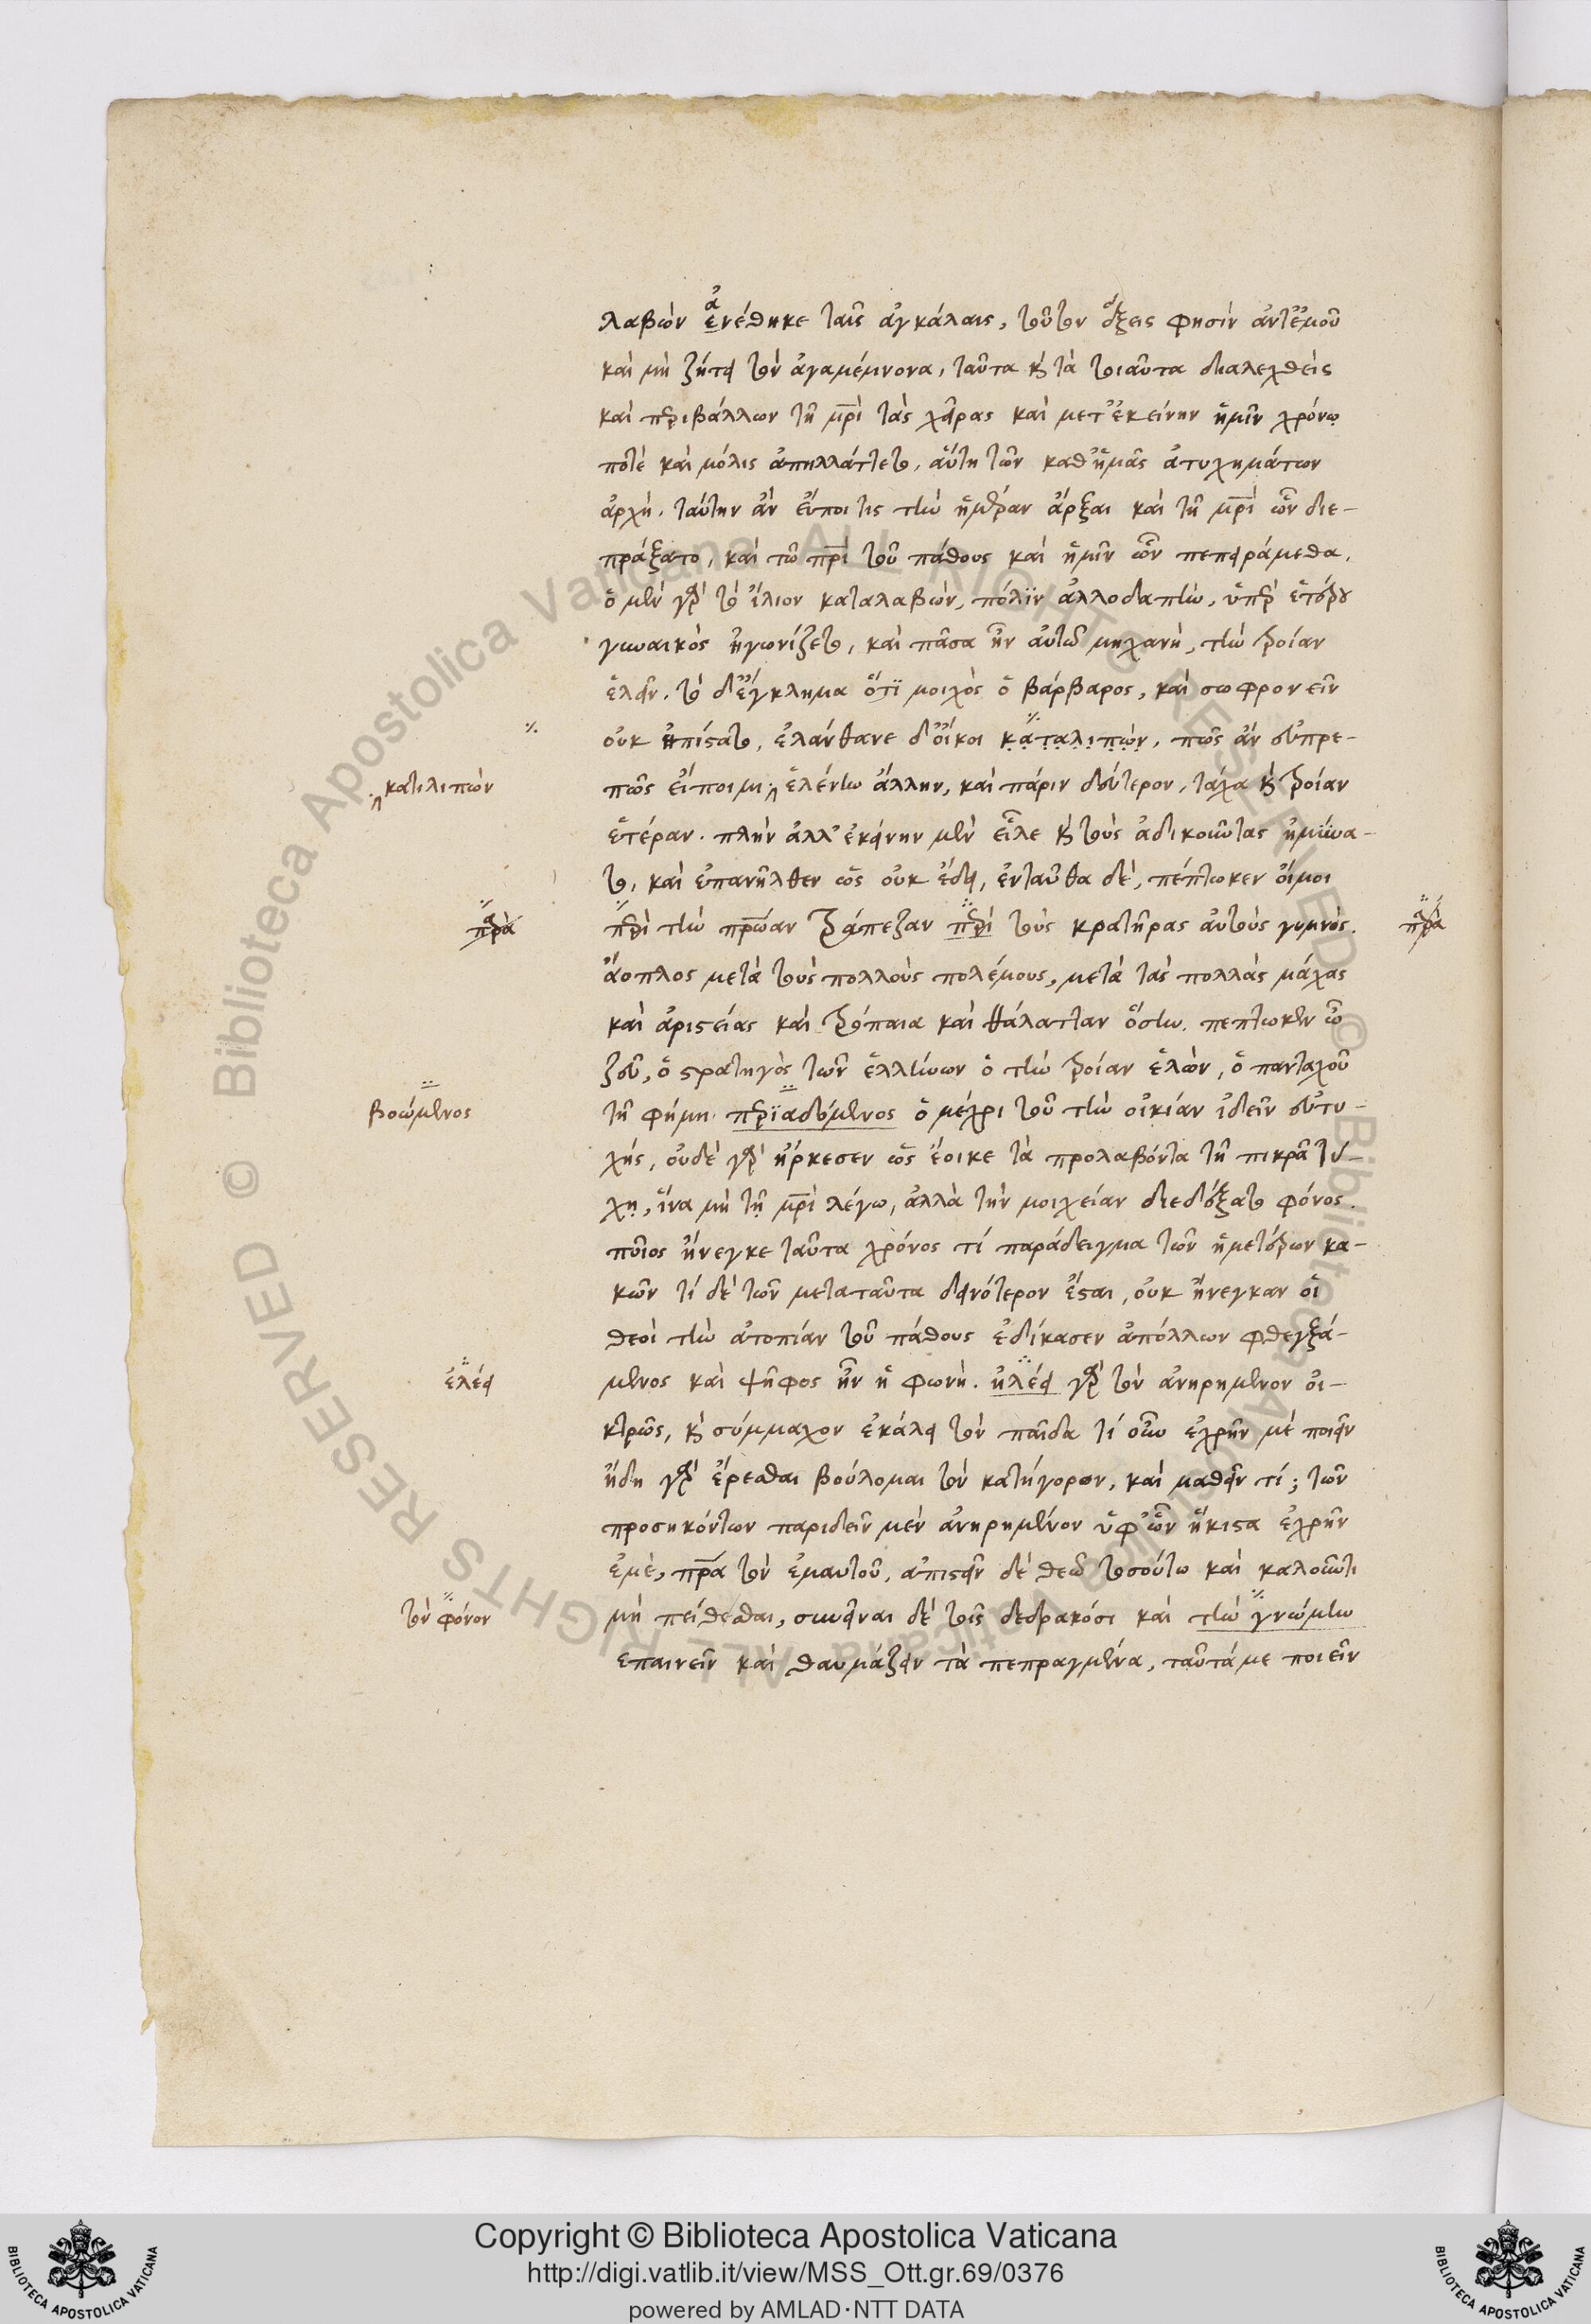 λαβὼν ἐνέθηκε ταῖς ἀγκάλαις, τοῦτον ἕξεις φησὶν ἀντ᾽ ἐμοῦ
ἀ
καὶ μὴ ζήτει τὸν ἀγαμέμνονα, ταῦτα κỳ τὰ τοιαῦτα διαλεχθεὶς
καὶ περιβάλλων τῆ μρὶ τὰς χεῖρας καὶ μετ᾽ ἐκείνην ἡμῖν χρόνω
ποτὲ καὶ μόλις ἀπηλλάττετο, αὕτη τῶν καθ᾽ ἡμᾶς ἀτυχημάτων
ἀρχή. ταύτην ἂν εἴποι τις τὴν ἡμέραν ἄρξαι καὶ τῆ μρὶ ὧν διε-
πράξατο, καὶ τῶ πρὶ τοῦ πάθους καὶ ἡμῖν ὧν πεπειράμεθα.
ὁ μὲν γὰρ τὸ ἴλιον καταλαβὼν, πόλϊν ἀλλοδαπὴν, ὑπὲρ ἑτέρου
γυναικὸς ἠγωνίζετο, καὶ πᾶσα ἦν αὐτῶ μηχανὴ, τὴν τροίαν
ἑλεῖν. τὸ δ᾽ ἔγκλημα ὅτϊ μοιχὸς ὁ βάρβαρος, καὶ σωφρονεῖν
οὐκ ἠπίστατο, ἐλάνθανε δ᾽ οἴκοι καταλιπὼν. πῶς ἂν εὐπρε-
πῶς εἴποιμι. ἑλένην ἄλλην, καὶ πάριν δεύτερον, τάχα καὶ τροίαν
καταλιπὼν
ἑτέραν. πλὴν ἀλλ᾽ ἐκείνην μὲν εἷλε καὶ τοὺς ἀδικοῦντας ἠμύνα-
το, καὶ ἐπανῆλθεν ὡς οὐκ ἔδει, ἐνταῦθα δὲ, πέπτωκεν οἴμοι
περὶ τὴν πρώαν τράπεζαν περὶ τοὺς κρατῆρας αὐτοὺς γυμνὸς.
παρὰ
παρὰ
ἄοπλος μετὰ τοὺς πολλοὺς πολέμους, μετὰ τὰς πολλὰς μάχας
καὶ ἀριστείας καὶ τρόπαια καὶ θάλατταν ὅστω. πεπτωκεν ὦ
ζεῦ, ὁ στρατηγὸς τῶν ἑλλήνων ὁ τὴν τροίαν ἑλὼν, ὁ πανταχοῦ
τῆ φήμη περϊαδόμενος ὁ μέχρι τοῦ τὴν οἰκίαν ἰδεῖν εὐτυ-
βοώμενος
χής, οὐδὲ γὰρ ἤρκεσεν ὡς ἔοικε τὰ προλαβόντα τῆ πικρᾶ τύ-
χῃ, ἵνα μὴ τῇ μρὶ λέγω, ἀλλὰ τὴν μοιχείαν διεδέξατο φόνος.
ποῖος ἤνεγκε ταῦτα χρόνος τί παράδειγμα τῶν ἡμετέρων κα-
κῶν τί δὲ τῶν μεταταῦτα δεινότερον ἔσται, οὐκ ἤνεγκαν οἱ
θεοὶ τὴν ἀτοπίαν τοῦ πάθους ἐδίκασεν ἀπόλλων φθεγξά-
μενος καὶ ψῆφος ἦν ἡ φωνὴ. ἠλέει γὰρ τὸν ἀνῃρημένον οἰ-
ἐλέει
κτρῶς, καὶ σύμμαχον ἐκάλει τὸν παῖδα τί οὖν ἐχρῆν μὲ ποιεῖν
ἤδη γὰρ ἔρεσθαι βούλομαι τὸν κατήγορον, καὶ μαθεῖν τί; τῶν
προσηκόντων παριδεῖν μὲν ἀνῃρημένον ὑφ᾽ ὧν ἥκιστα ἐχρῆν
ἐμὲ, πρα τὸν ἐμαυτοῦ, ἀπιστεῖν δὲ θεῶ τοσούτω καὶ καλοῦντι
μὴ πείθεσθαι, συνεῖναι δὲ τοῖς δεδρακόσι καὶ τὴν γνώμην
τὸν φόνον
ἐπαινεῖν καὶ θαυμάζειν τὰ πεπραγμένα, ταῦτά με ποιεῖν
Copyright © Biblioteca Apostolica Vaticana
http://digi.vatlib.it/view/MSS_Ott.gr.69/0376
powered by AMLAD·NTT DATA